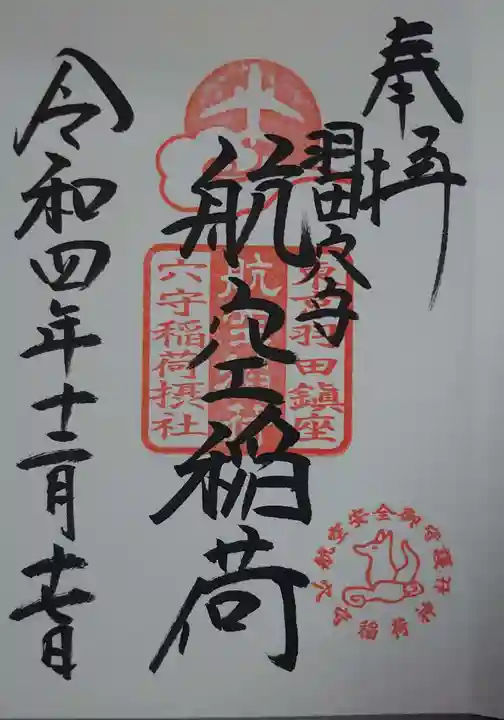 奉拝
羽田穴守
航空稲荷
令和四年十二月十七日
東京羽田鎮座
航空稲荷
穴守稲荷摂社